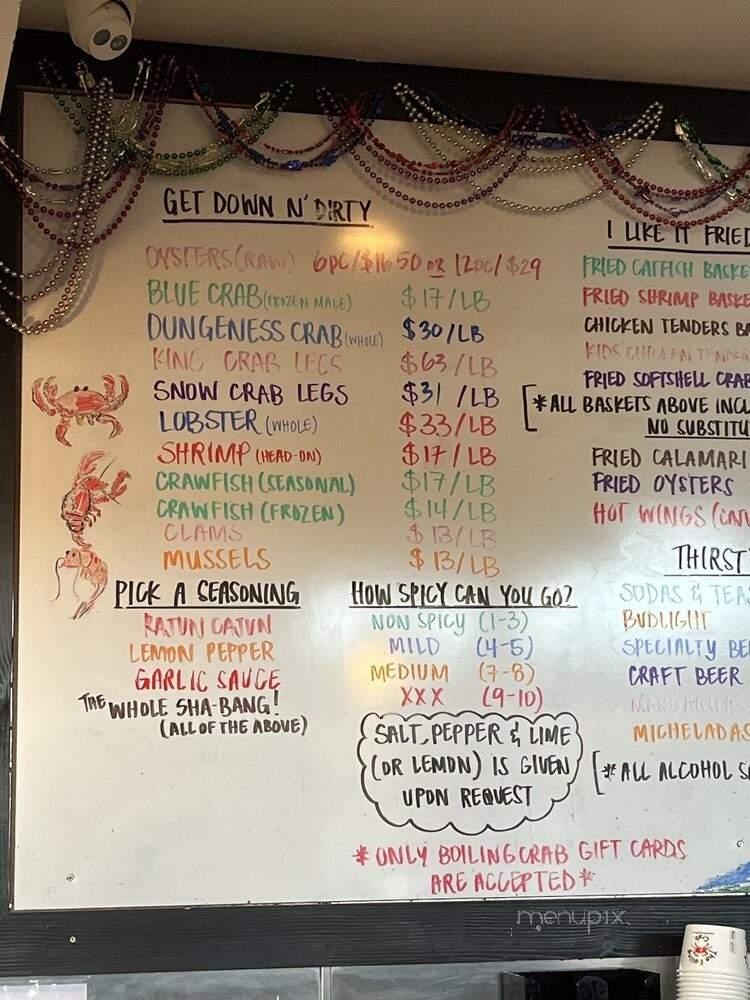 GET DOWN N' DIRTY
OYSTERS (RAW) 6PC/$16.50 OR 12PC/$29
BLUE CRAB (FROZEN MALE) $17/LB
DUNGENESS CRAB (WHOLE) $30/LB
KING CRAB LEGS $63/LB
SNOW CRAB LEGS $31/LB
LOBSTER (WHOLE) $33/LB
SHRIMP (HEAD-ON) $17/LB
CRAWFISH (SEASONAL) $17/LB
CRAWFISH (FROZEN) $14/LB
CLAMS $13/LB
MUSSELS $13/LB
PICK A SEASONING
RAJUN CAJUN
LEMON PEPPER
GARLIC SAUCE
THE WHOLE SHA-BANG!
(ALL OF THE ABOVE)
HOW SPICY CAN YOU GO?
NON SPICY (1-3)
MILD (4-5)
MEDIUM (7-8)
XXX (9-10)
SALT, PEPPER & LIME
(OR LEMON) IS GIVEN
UPON REQUEST
*ONLY BOILING CRAB GIFT CARDS
ARE ACCEPTED*
I LIKE IT FRIED
FRIED CATFICH BASKE
FRIED SHRIMP BASKE
CHICKEN TENDERS BA
KIDS CHICKEN TENDER
FRIED SOFTSHELL CRAB
[*ALL BASKETS ABOVE INCL
NO SUBSTITU
FRIED CALAMARI
FRIED OYSTERS
HOT WINGS
THIRST
SODAS & TEAS
BUDLIGHT
SPECIALTY BE
CRAFT BEER
MICHELADAS
[*ALL ALCOHOL SA
menupix